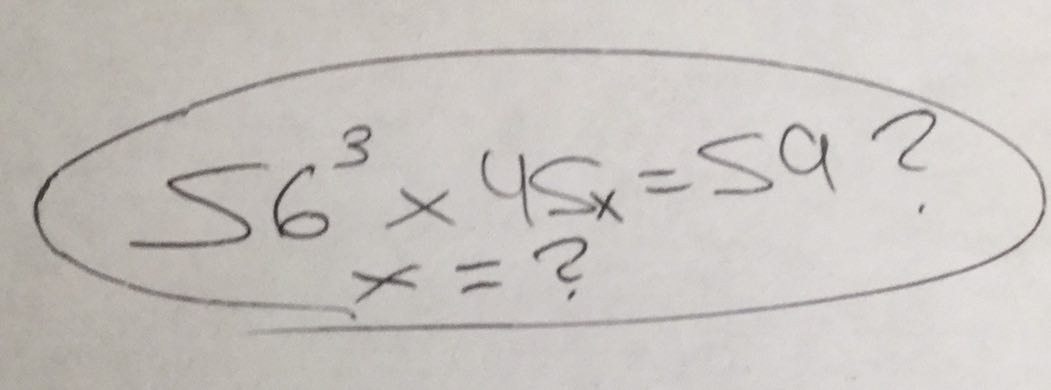 56³ x 45x = 59 ?
x = ?